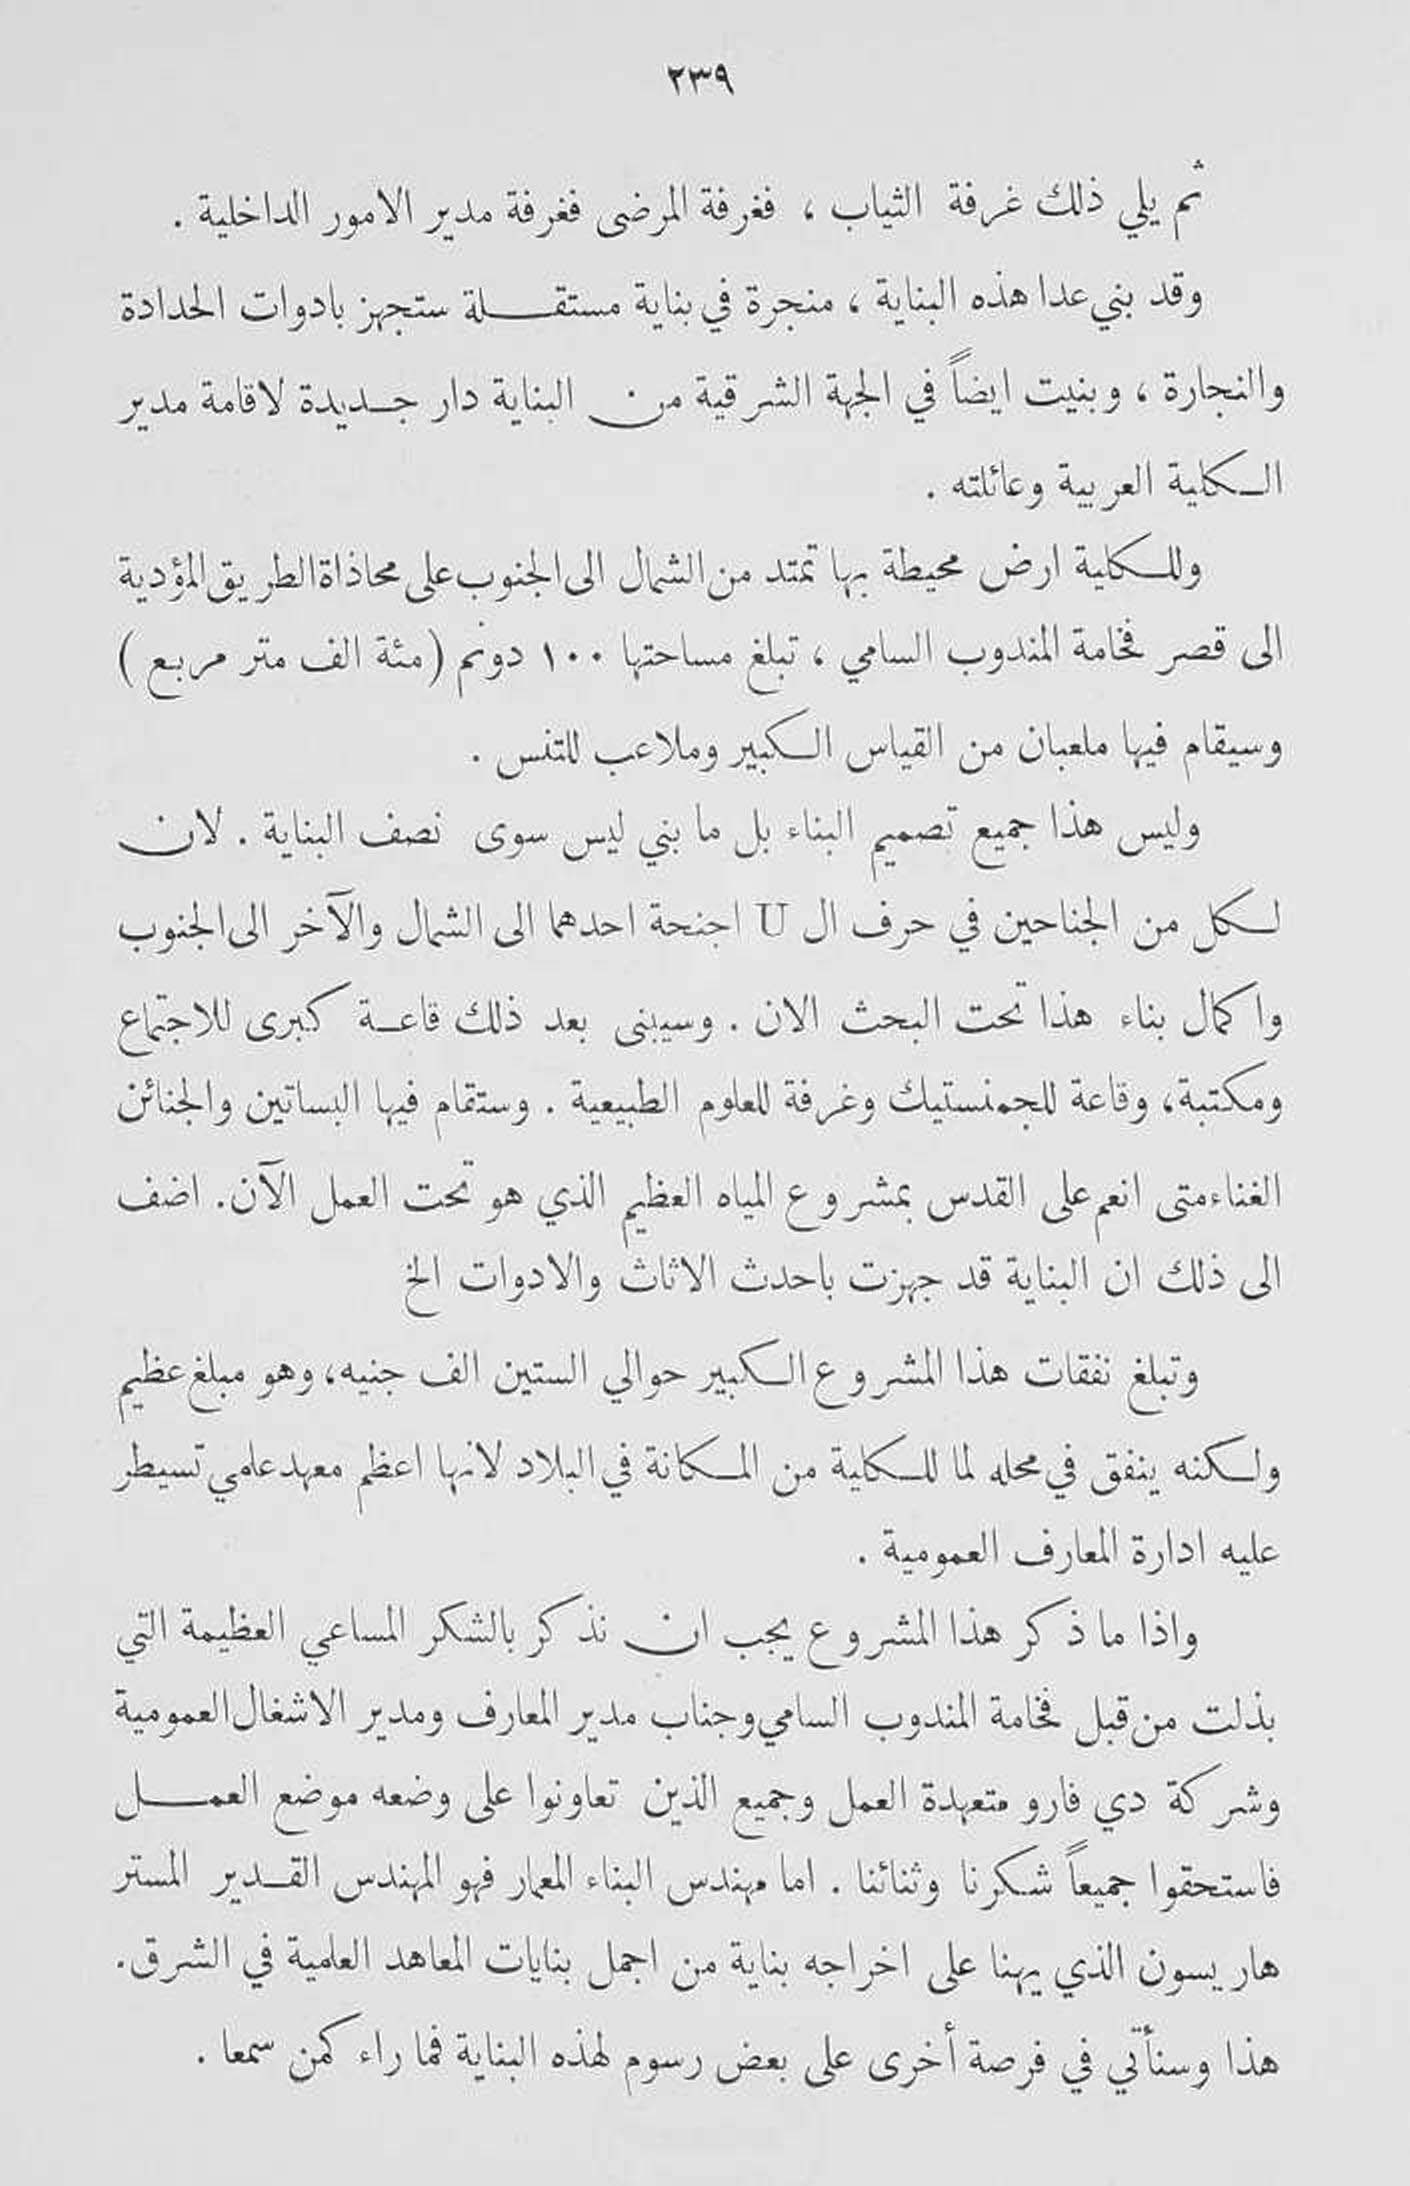 ٢٣٩
ثم يلي ذلك غرفة الثياب ، فغرفة المرضى فغرفة مدير الامور الداخلية .
وقد بني عدا هذه البناية ، منجرة في بناية مستقلة ستجهز بادوات الحدادة
والنجارة ، وبنيت ايضاً في الجهة الشرقية من البناية دار جديدة لاقامة مدير
الكلية العربية وعائلته .
وللكلية ارض محيطة بها تمتد من الشمال الى الجنوب على محاذاة الطريق المؤدية
الى قصر فخامة المندوب السامي ، تبلغ مساحتها ١٠٠ دونم (مئة الف متر مربع )
وسيقام فيها ملعبان من القياس الكبير وملاعب للتنس .
وليس هذا جميع تصميم البناء بل ما بني ليس سوى نصف البناية . لان
لكل من الجناحين في حرف ال U اجنحة احدهما الى الشمال والآخر الى الجنوب
واكمال بناء هذا تحت البحث الان . وسيبنى بعد ذلك قاعة كبرى للاجتماع
ومكتبة، وقاعة للجمنستيك وغرفة للعلوم الطبيعية . وستقام فيها البساتين والجنائن
الغناء متى انعم على القدس بمشروع المياه العظيم الذي هو تحت العمل الآن. اضف
الى ذلك ان البناية قد جهزت باحدث الاثاث والادوات الخ
وتبلغ نفقات هذا المشروع الكبير حوالي الستين الف جنيه، وهو مبلغ عظيم
ولكنه ينفق في محله لما للكلية من المكانة في البلاد لانها اعظم معهد علمي تسيطر
عليه ادارة المعارف العمومية .
واذا ما ذكر هذا المشروع يجب ان نذكر بالشكر المساعي العظيمة التي
بذلت من قبل فخامة المندوب السامي وجناب مدير المعارف ومدير الاشغال العمومية
وشركة دي فارو متعهدة العمل وجميع الذين تعاونوا على وضعه موضع العمل
فاستحقوا جميعاً شكرنا وثنائنا . اما مهندس البناء المعمار فهو المهندس القدير المستر
هاريسون الذي يهنا على اخراجه بناية من اجمل بنايات المعاهد العلمية في الشرق.
هذا وسنأتي في فرصة أخرى على بعض رسوم لهذه البناية فما راء كمن سمعا .